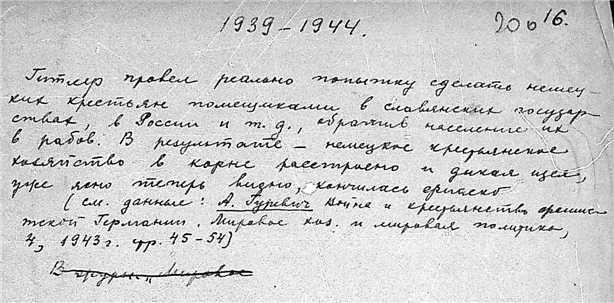 1939-1944.
206 16.
Гитлер провел реально попытку сделать немец-
ких крестьян помещиками в славянских государ-
ствах, в России и т.д., обратив население их
в рабов. В результате - немецкое крестьянское
хозяйство в корне расстроено и дикая идея,
уже ясно теперь видно, кончилась
(см. данные: А. Гуревич Война и крестьянство фашис-
тской Германии. Мировое хоз. и мировая политика,
4, 1943 г. стр. 45-54)
В журн. "Мировое